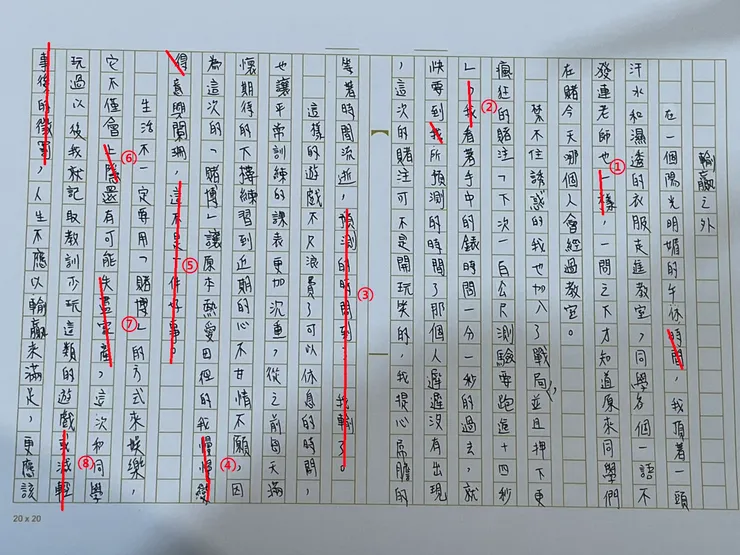 輸贏之外
在一個陽光明媚的午休時間，我頂著一頭
汗水和濕透的衣服走進教室，同學各個一語不
發連老師也①樣，一問之下才知道原來同學們
在賭今天哪個人會經過教室。
禁不住誘惑的我也加入了戰局，並且押下更
瘋狂的賭注「下次一百公尺測驗要跑進十四秒
」，我②看著手中的錶時間一分一秒的過去，就
快要到我所預測的時間了那個人遲遲沒有出現
，這次的賭注可不是開玩笑的，我提心吊膽的
等著時間流逝，預測的時間到③…我輸了。
這樣的遊戲不只浪費了可以休息的時間，
也讓平常訓練的課表更加沉重，從之前每天滿
懷期待的下樓練習到近期的心不甘情不願，因
為這次的「賭博」讓原本熱愛田徑的我慢慢變④
得意興闌珊，這不是一件好事。⑤
生活不一定要用「賭博」的方式來娛樂，
它不僅會上隱⑥還有可能失盡家產⑦，這次和同學
玩過以後我就記取教訓少玩這類的遊戲或減輕⑧
事後的懲罰，人生不應以輸贏來滿足，更應該
20 x 20